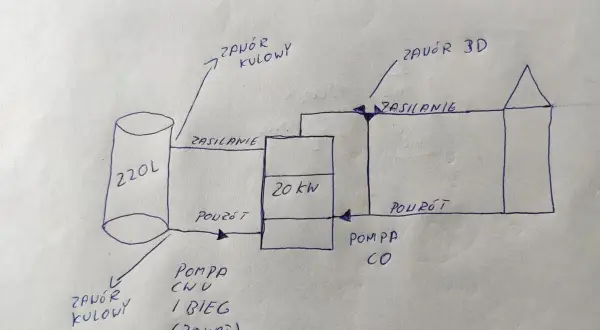 ZAWÓR
KULOWY
ZAWÓR 3D
ZASILANIE
ZASILANIE
220L
20 KW
POWRÓT
POWRÓT
POMPA
CO
ZAWÓR
KULOWY
POMPA
CWU
1 BIEG